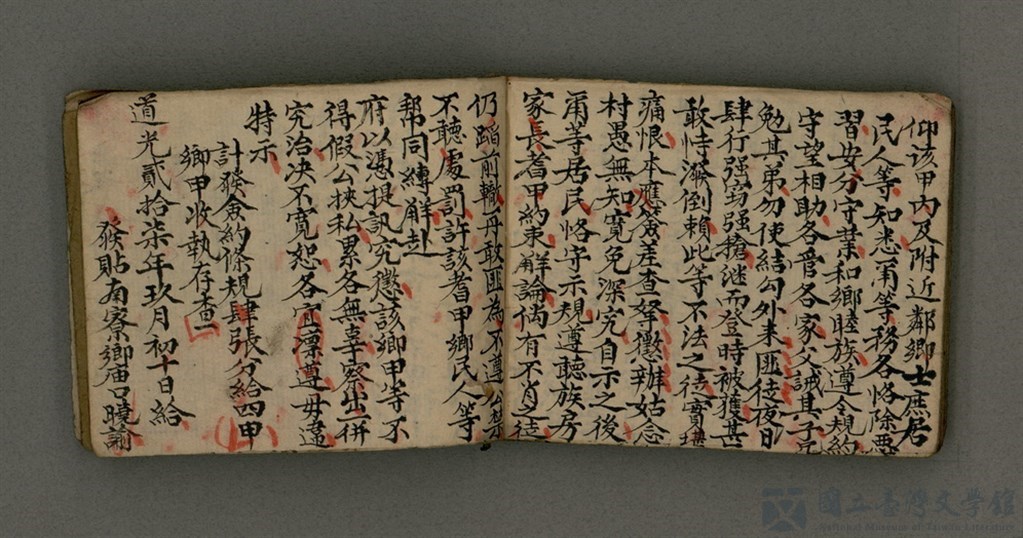 仰该甲内及附近鄰鄉士庶居
民人等知悉甭等務各恪除惡
習安分守業和鄉睦族遵令規約
守望相助各菅各家父誡其子兄
勉其弟勿使結勾外来匪徒夜日
肆行强窃强搶継而登時被獲甚
敢恃潑倒賴此等不法之徒實堪
痛恨本應簽差查拏懲辦姑念
村愚無知寛免深究自示之後
甭等居民恪守示規遵聽族房
家長耆甲約束觧論倘有不肖之徒
仍蹈前轍再敢匪為不遵公禁
不聽處罰許該耆甲鄉民人等
帮同縛觧赴
府以憑提訊究懲該鄉甲等不
得假公挾私累各無辜察出一併
究治决不寛恕各宜凛遵毋違
特示
計發僉約條規肆張分給四甲
鄉甲收執存查一
道光貳拾柒年玖月初十日給
發貼南寮鄉庙口曉諭
國立臺灣文學館
National Museum of Taiwan Literature